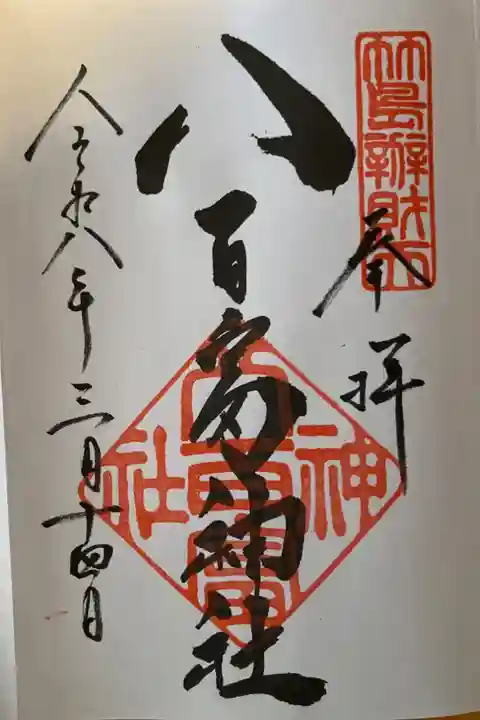 竹島辦財天
奉拝
八百富神社
八百富神社
令和八年三月十四日